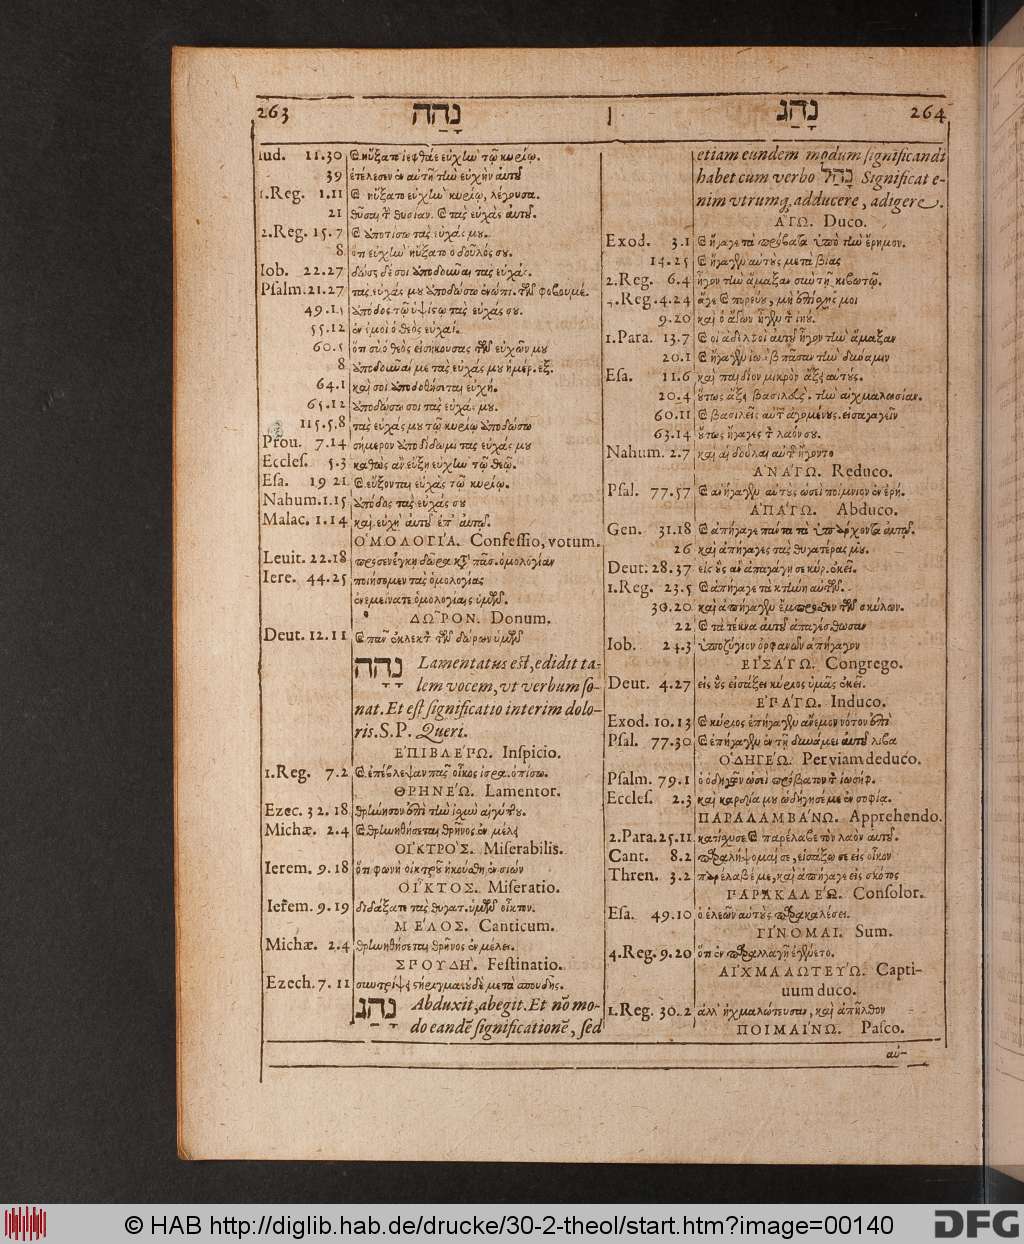 263 נָהָה נ נָהַג 264
Iud. 11.30 καὶ ηὔξατο ἰεφθάε εὐχὴν τῷ κυρίῳ.
39 ἐπετέλεσεν ἐν αὐτῇ τὴν εὐχὴν αὐτοῦ
1.Reg. 1.11 καὶ ηὔξατο εὐχὴν κυρίῳ, λέγουσα.
21 θῦσαι τ θυσίαν. καὶ τὰς εὐχὰς αὐτοῦ.
2.Reg. 15.7 καὶ ἀποτίσω τὰς εὐχάς μου.
8 ὅτι εὐχὴν ηὔξατο ὁ δοῦλός σου.
Iob. 22.27 δώσει δέ σοι ἀποδοῦναι τὰς εὐχάς.
Psalm. 21.27 τὰς εὐχάς μου ἀποδώσω ἐνώπι. τῶν φοβουμέ.
49.15 ἀπόδος τῷ ὑψίστῳ τὰς εὐχάς σου.
55.12 ἐν ἐμοὶ ὁ θεὸς εὐχαί.
60.5 ὅτι σὺ ὁ θεὸς εἰσήκουσας τῶν εὐχῶν μου
8 ἀποδοῦναί με τὰς εὐχάς μου ἡμέρ. ἐξ.
64.1 καὶ σοὶ ἀποδοθήσεται εὐχή.
65.12 ἀποδώσω σοι τὰς εὐχάς μου.
115.5.8 τὰς εὐχάς μου τῷ κυρίῳ ἀποδώσω
Prou. 7.14 σήμερον ἀποδίδωμι τὰς εὐχάς μου
Eccles. 5.3 καθὼς ἂν εὔξῃ εὐχὴν τῷ θεῷ.
Esa. 19 21 καὶ εὔξονται εὐχὰς τῷ κυρίῳ.
Nahum. 1.15 ἀπόδος τὰς εὐχάς σου
Malac. 1.14 καὶ εὐχὴ αὐτοῦ ἐπ' αὐτῷ.
ὉΜΟΛΟΓΊΑ. Confeſſio, votum.
Leuit. 22.18 προσενέγκῃ δῶρα κτ πᾶσ. ὁμολογίαν
Iere. 44.25 ποιήσομεν τὰς ὁμολογίας
ἐνεμείνατε ὁμολογίαις ὑμῶν.
ΔΩ͂ΡΟΝ. Donum.
Deut. 12.11 καὶ παν ἐκλεκτ τῶν δώρων ὑμῶν
נָהָה Lamentatus eſt, edidit ta-
lem vocem, vt verbum ſo-
nat. Et eſt ſignificatio interim dolo-
ris. S.P. Queri.
ἘΠΙΒΛΈΠΩ. Inſpicio.
1.Reg. 7.2 καὶ ἐπέβλεψαν πας οἶκος ἰσρα. ὀπίσω.
ΘΡΗΝΈΩ. Lamentor.
Ezec. 32.18 θρήνησον ἐπὶ τὴν ἰσχὺν αἰγύπτου.
Michæ. 2.4 καὶ θρηνηθήσεται θρῆνος ἐν μέλει
ΟἸΚΤΡΌΣ. Miſerabilis.
Ierem. 9.18 ὅτι φωνὴ οἰκτροῦ ἠκούσθη ἐν σιών
ΟἾΚΤΟΣ. Miſeratio.
Ierem. 9.19 διδάξατε τὰς θυγατ. ὑμῶν οἶκτον.
ΜΈΛΟΣ. Canticum.
Michæ. 2.4 θρηνηθήσεται θρῆνος ἐν μέλει.
ΣΠΟΥΔΉ. Feſtinatio.
Ezech. 7.11 μετὰ σπουδῆς.
נָהַג Abduxit, abegit. Et nō mo-
do eandē ſignificationē, ſed
etiam eundem modum ſignificandi
habet cum verbo נָהַל Significat e-
nim vtrumq; adducere, adigere.
ἌΓΩ. Duco.
Exod. 3.1 καὶ ἤγαγε τὰ πρόβατα ὑπὸ τὴν ἔρημον.
14.25 καὶ ἤγαγεν αὐτοὺς μετὰ βίας
2.Reg. 6.4 ἦγον τὴν ἅμαξαν σὺν τῇ κιβωτῷ.
4.Reg. 4.24 ἄγε καὶ πορεύου, μὴ ἐπίσχῃς μοι
9.20 καὶ ὁ ἄγων ἦγεν τ ἰηού.
1.Para. 13.7 καὶ οἱ ἀδελφοὶ αὐτοῦ ἦγον τὴν ἅμαξαν
20.1 καὶ ἤγαγεν ἰωὰβ πᾶσαν τὴν δύναμιν
Esa. 11.6 καὶ παιδίον μικρὸν ἄξει αὐτούς.
20.4 οὕτως ἄξει βασιλεὺς. τὴν αἰχμαλωσίαν.
60.11 καὶ βασιλεῖς αὐτ ἀγομένους. εἰσαγαγεῖν
63.14 οὕτως ἤγαγες τ λαόν σου.
Nahum. 2.7 καὶ αἱ δοῦλαι αὐτ ἤγοντο
ἈΝΆΓΩ. Reduco.
Pſal. 77.57 καὶ ἀνήγαγεν αὐτοὺς ὡσεὶ ποίμνιον ἐν ἐρή.
ἈΠΆΓΩ. Abduco.
Gen. 31.18 καὶ ἀπήγαγε πάντα τὰ ὑπάρχοντα αὐτοῦ.
26 καὶ ἀπήγαγες τὰς θυγατέρας μου.
Deut. 28.37 εἰς οὓς ἂν ἀπαγάγῃ σε κύρ. ἐκεῖ.
1.Reg. 23.5 καὶ ἀπήγαγε τὰ κτήνη αὐτῶν.
30.20 καὶ ἀπήγαγεν ἔμπροσθεν τῶν σκύλων.
22 καὶ τὰ τέκνα αὐτοῦ ἀπαγέσθωσαν
Iob. 24.3 ὑποζύγιον ὀρφανῶν ἀπήγαγον
ΕἸΣΆΓΩ. Congrego.
Deut. 4.27 εἰς οὓς εἰσάξει κύριος ὑμᾶς ἐκεῖ.
ἘΠΆΓΩ. Induco.
Exod. 10.13 καὶ κύριος ἐπήγαγεν ἄνεμον νότον ἐπὶ
Pſal. 77.30 καὶ ἐπήγαγεν ἐν τῇ δυνάμει αὐτοῦ λίβα
ὉΔΗΓΈΩ. Per viam deduco.
Pſalm. 79.1 ὁ ὁδηγῶν ὡσεὶ πρόβατον τ ἰωσήφ.
Eccleſ. 2.3 καὶ καρδία μου ὡδήγησέ με ἐν σοφίᾳ.
ΠΑΡΑΛΑΜΒΆΝΩ. Apprehendo.
2.Para. 25.11 κατίσχυσε καὶ παρέλαβε τὸν λαὸν αὐτοῦ.
Cant. 8.2 παραλήψομαί σε, εἰσάξω σε εἰς οἶκον
Thren. 3.2 παρέλαβέ με, καὶ ἀπήγαγε εἰς σκότος
ΠΑΡΑΚΑΛΈΩ. Conſolor.
Eſa. 49.10 ὁ ἐλεῶν αὐτοὺς παρακαλέσει.
ΓΊΝΟΜΑΙ. Sum.
4.Reg. 9.20 ὅτι ἐν παραλλαγῇ ἐγένετο.
ΑἸΧΜΑΛΩΤΕΎΩ. Capti-
uum duco.
1.Reg. 30.2 ἀλλ' ᾐχμαλώτευσαν, καὶ ἀπῆλθον
ΠΟΙΜΑΊΝΩ. Paſco.
αὐ-
© HAB http://diglib.hab.de/drucke/30-2-theol/start.htm?image=00140 DFG